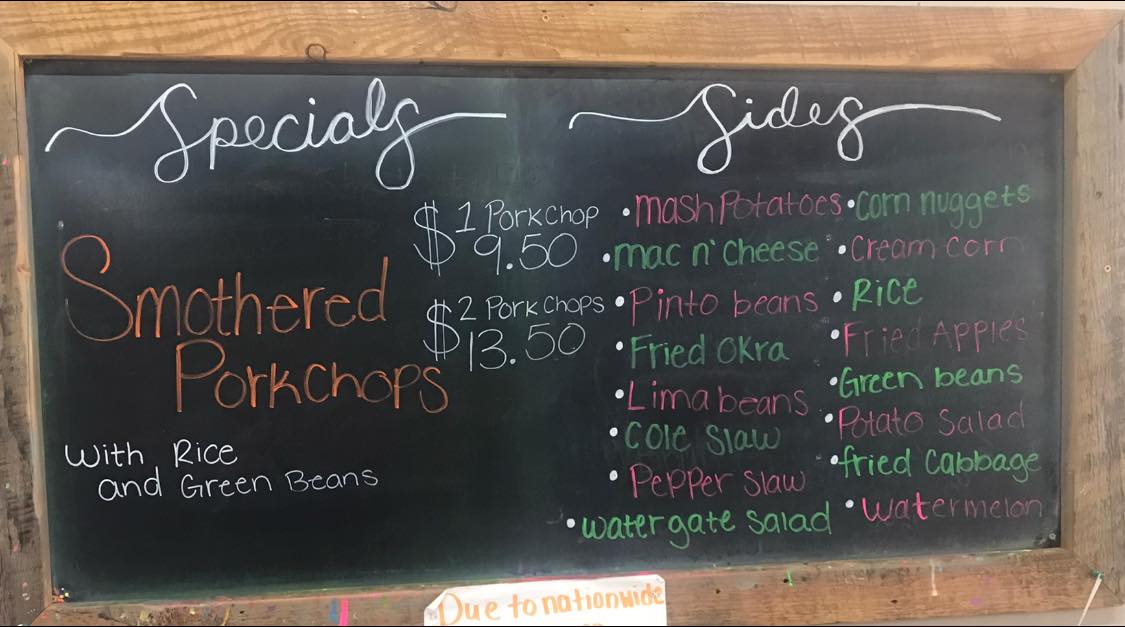 Specials
Smothered
Porkchops
With Rice
and Green Beans
1 Porkchop
$9.50
2 Pork Chops
$13.50
Sides
• mash Potatoes
• mac n' cheese
• Pinto beans
• Fried Okra
• Lima beans
• Cole Slaw
• Pepper Slaw
• watergate Salad
• corn nuggets
• Cream corn
• Rice
• Fried Apples
• Green beans
• Potato Salad
• fried Cabbage
• Watermelon
Due to nationwide